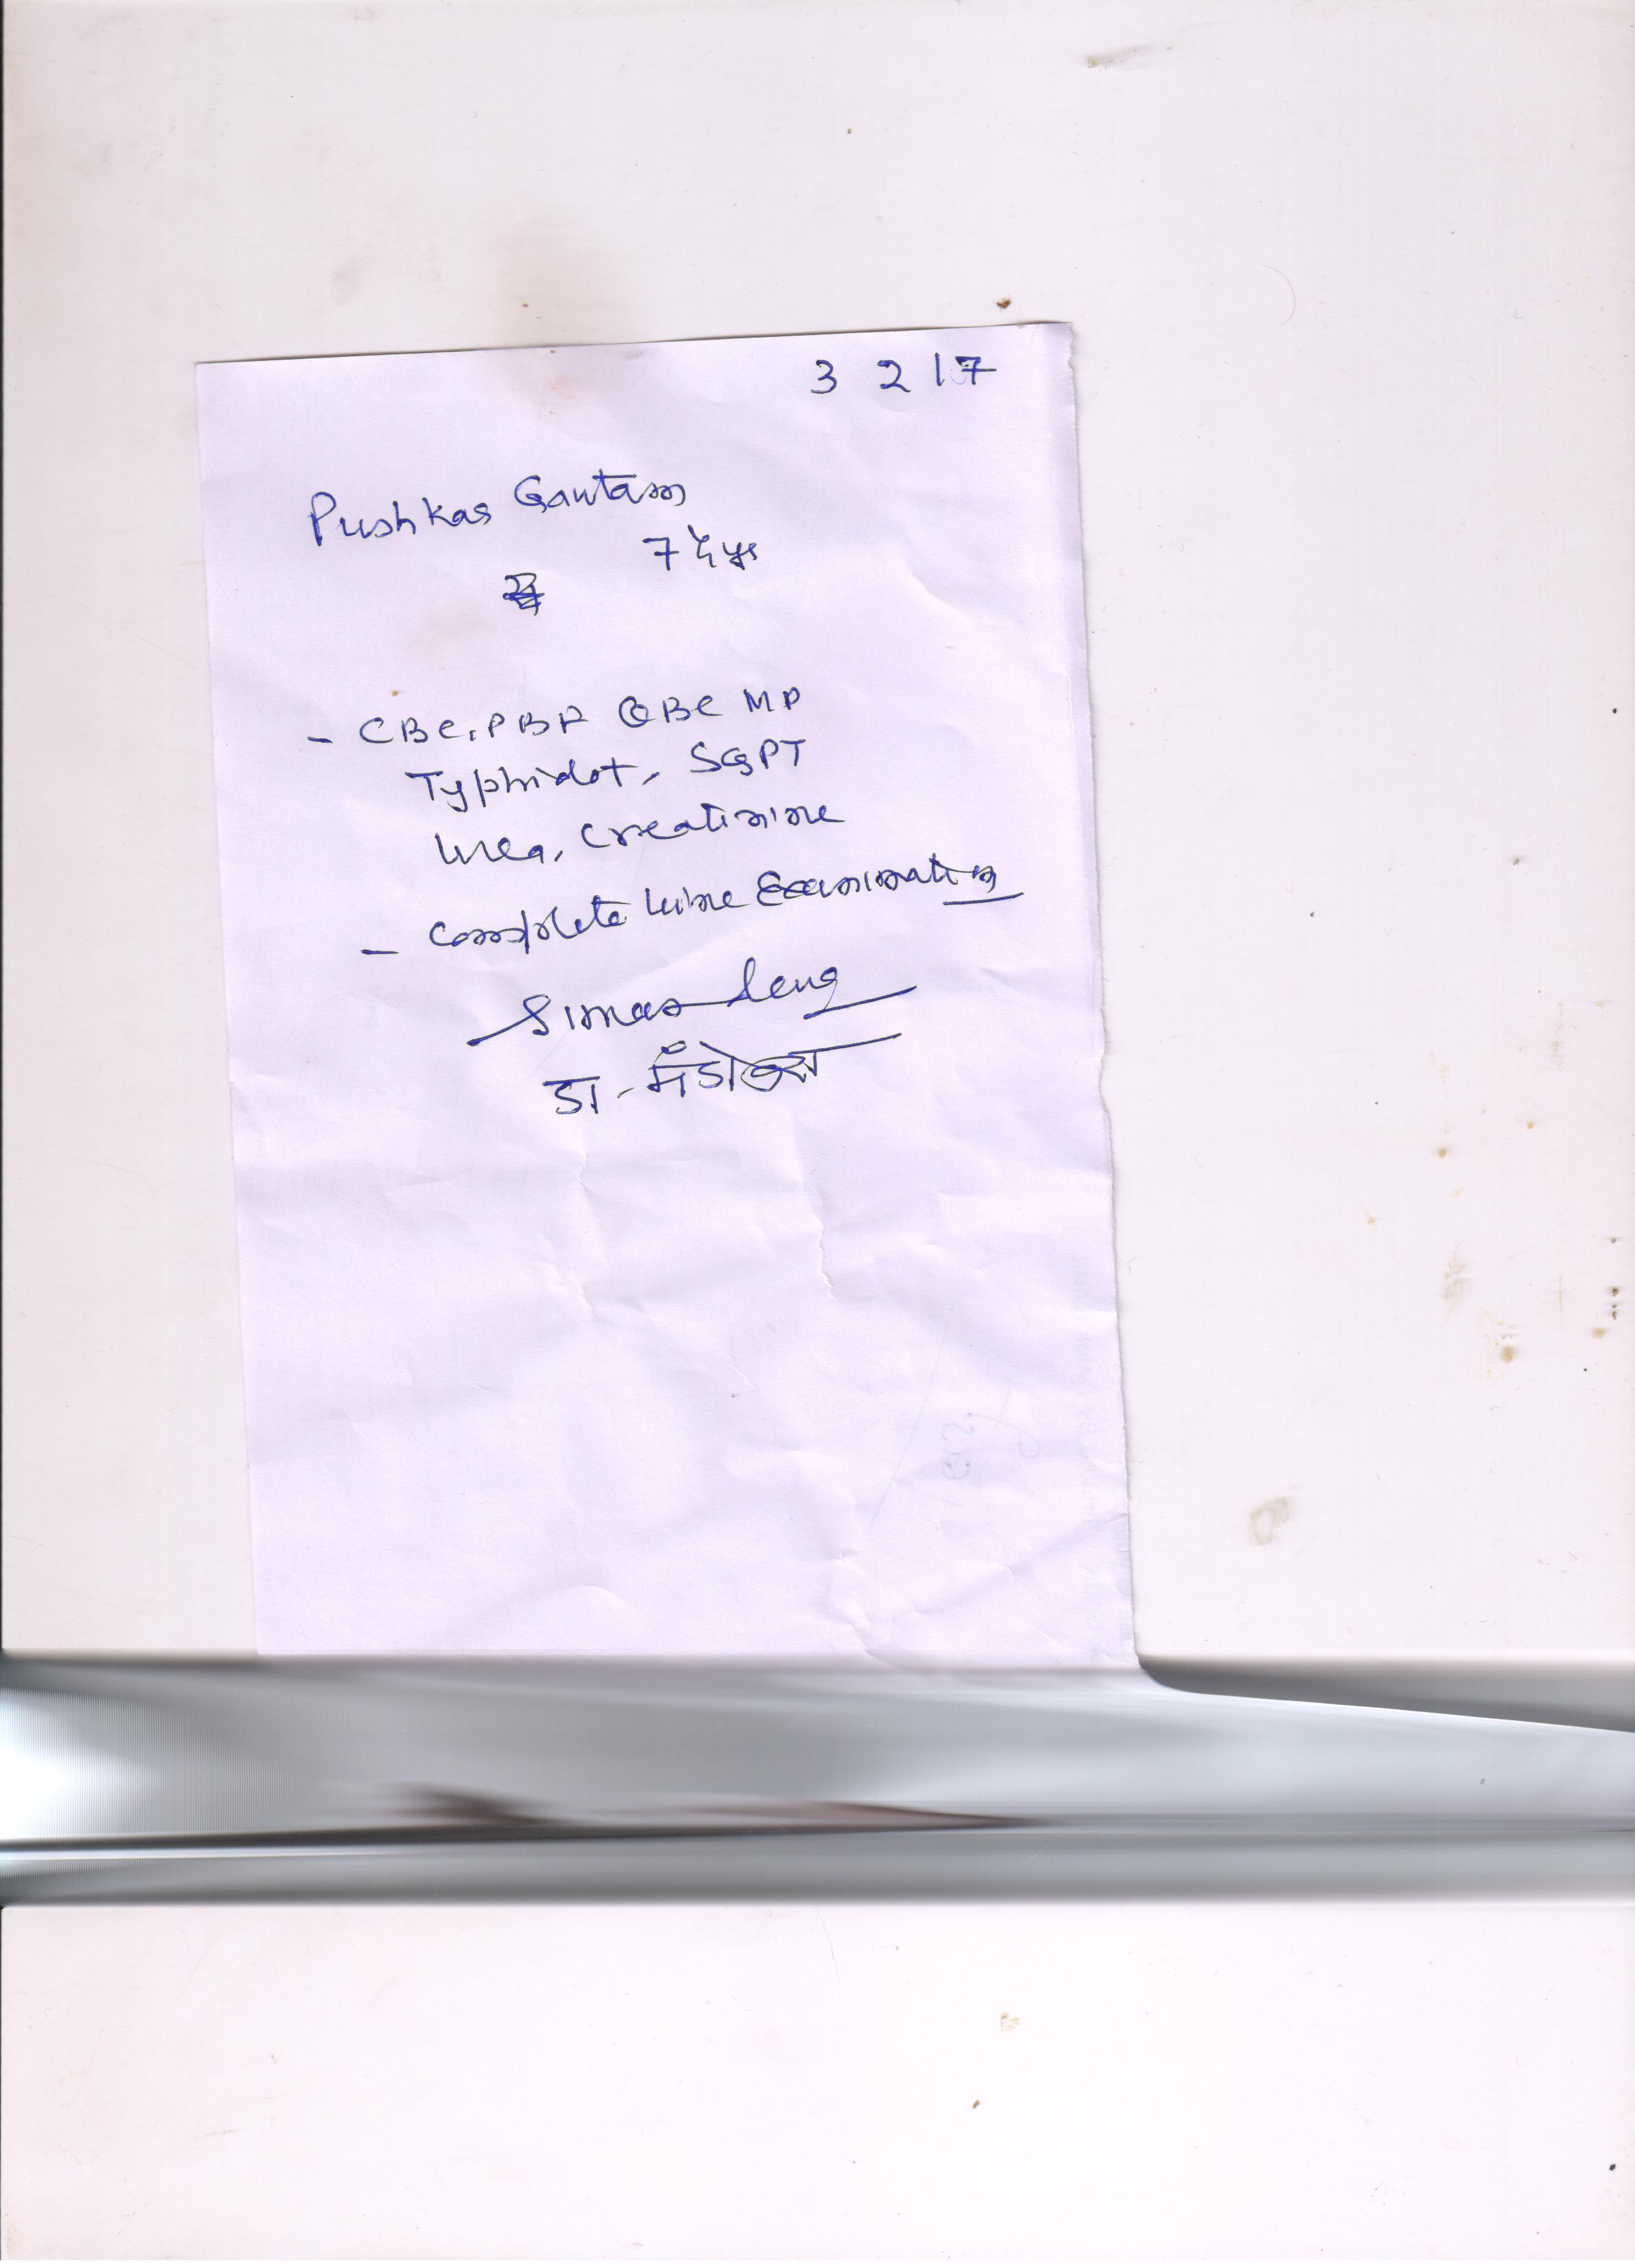 3 2 17
Pushkar Gautam
7 ½ yrs
- CBC, PBF QBC MP
Typhidot, SGPT
Urea, Creatinine
- Complete Urine Examination
डा.